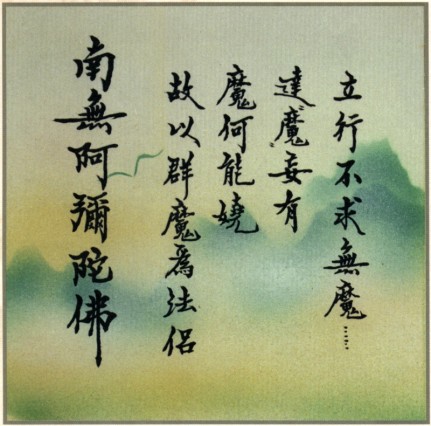 立行不求無魔……
達〝魔〞妄有
魔何能嬈
故以群魔爲法侶
南無阿彌陀佛